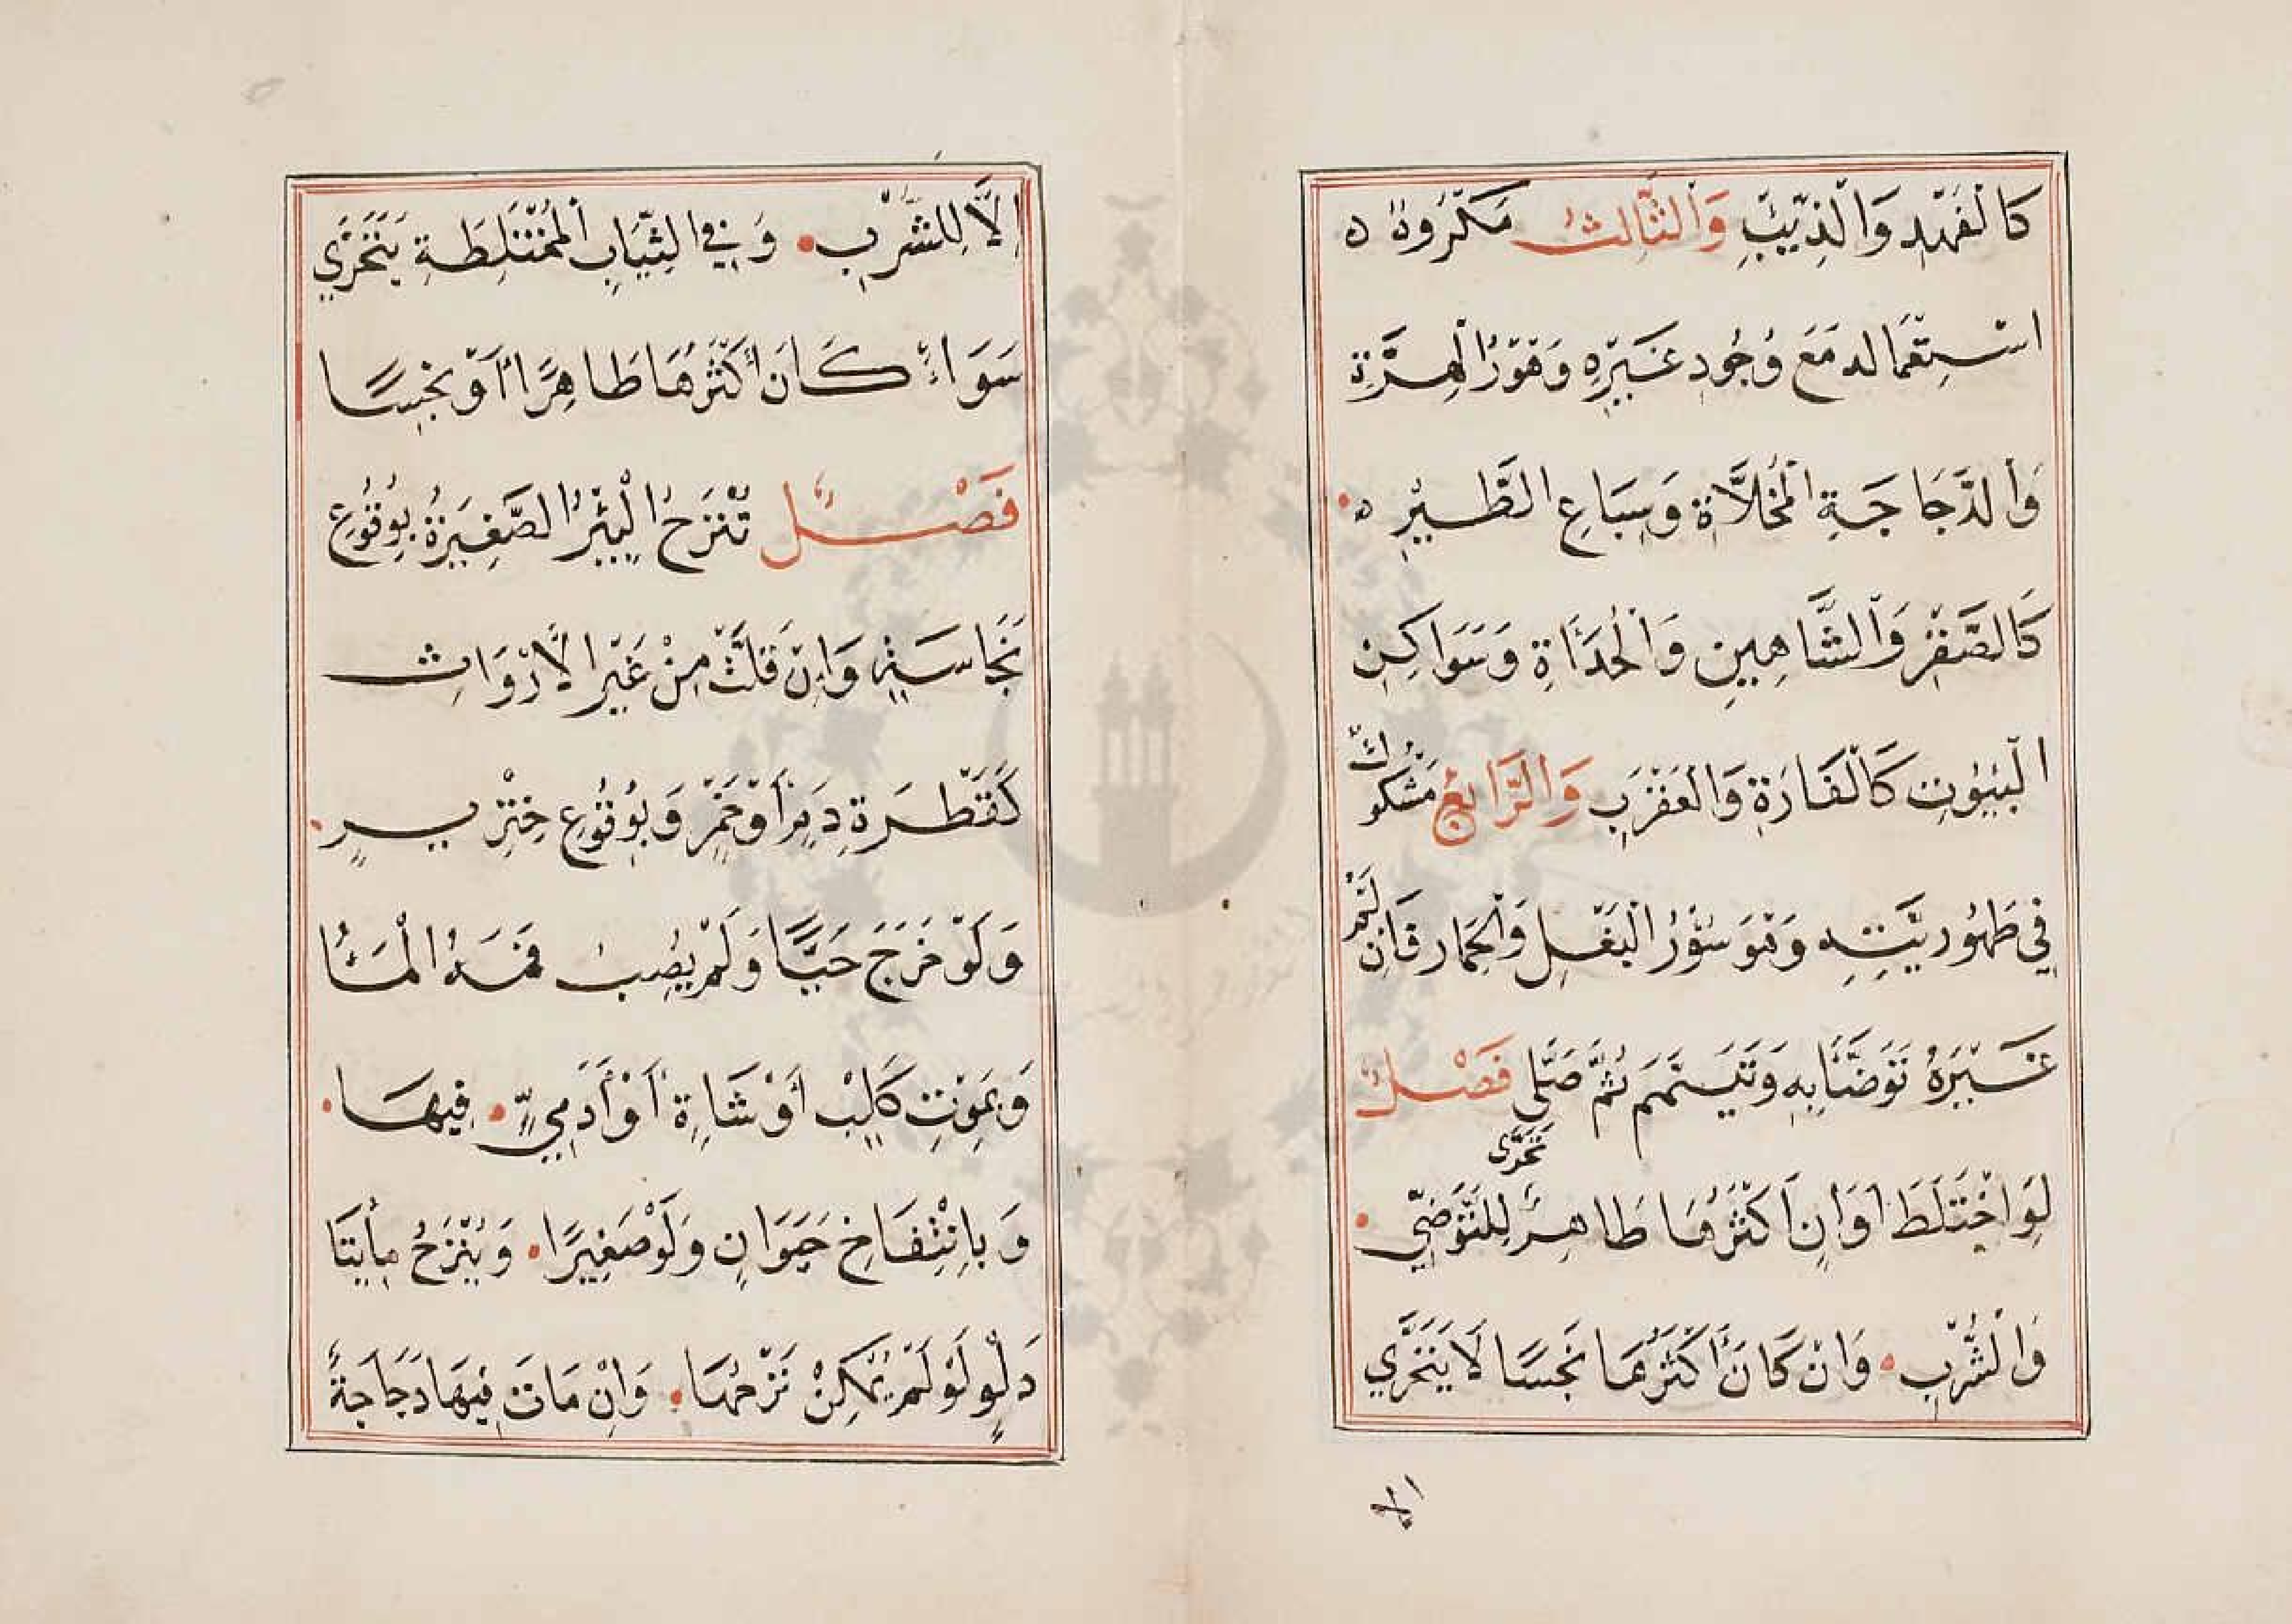 كَالْفَهْدِ وَالذِّيبِ وَالثَّالِثُ مَكْرُوهٌ ه
اسْتِعْمَالُهُ مَعَ وُجُودِ غَيْرِهِ وَهُوَ سُؤْرُ الْهِرَّةِ
وَالدَّجَاجَةِ الْمُخَلَّاةِ وَسِبَاعِ الطَّيْرِ ه
كَالصَّقْرِ وَالشَّاهِينِ وَالْحِدَأَةِ وَسَوَاكِنِ
الْبُيُوتِ كَالْفَارَةِ وَالْعَقْرَبِ وَالرَّابِعُ مَشْكُوكٌ
فِي طَهُورِيَّتِهِ وَهُوَ سُؤْرُ الْبَغْلِ وَالْحِمَارِ فَاِنْ لَمْ
غَيْرَهُ تَوَضَّأَ بِهِ وَتَيَمَّمَ ثُمَّ صَلَّى فَصْلٌ
لَوِ اخْتَلَطَ اَوَانٍ اَكْثَرُهَا طَاهِرٌ تَحَرَّى لِلتَّوَضِّي
وَالشُّرْبِ وَاِنْ كَانَ أَكْثَرُهَا نَجِسًا لَا يَتَحَرَّي
الا
اِلَّا لِلشُّرْبِ وَفِي الثِّيَابِ الْمُخْتَلِطَةِ يَتَحَرَّي
سَوَاءٌ كَانَ أَكْثَرُهَا طَاهِرًا أَوْ نَجِسًا
فَصْلٌ تُنْزَحُ الْبِئْرُ الصَّغِيرَةُ بِوُقُوعِ
نَجَاسَةٍ وَاِنْ قَلَّتْ مِنْ غَيْرِ الْاَرْوَاثِ
كَقَطْرَةِ دَمٍ أَوْ خَمْرٍ وَبِوُقُوعِ خِنْزِيرٍ
وَلَوْ خَرَجَ حَيًّا وَلَمْ يُصِبْ فَمَهُ الْمَاءُ
وَبِمَوْتِ كَلْبٍ أَوْ شَاةٍ أَوْ أَدَمِيٍّ فِيهَا
وَبِانْتِفَاخِ حَيَوَانٍ وَلَوْ صَغِيرًا وَيُنْزَحُ مِأَيتَا
دَلْوٍ لَوْ لَمْ يُمْكِنْ نَزْحُهَا وَاِنْ مَاتَ فِيهَا دَجَاجَةٌ